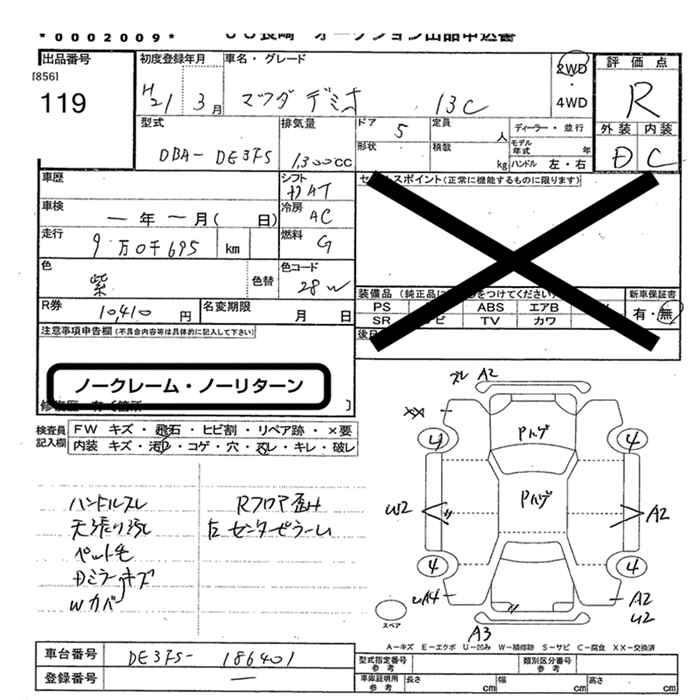 *0002009*
オークション出品申込書
出品番号
[856]
119
初度登録年月
H21 3月
車名・グレード
マツダ デミオ 13C
2WD
・
4WD
評価点
R
外装 内装
D C
型式
DBA- DE3FS
排気量
1,300cc
ドア 5
形状
定員 人
積載 kg
ディーラー・並行
モデル年式 年
ハンドル 左・右
車歴
シフト
車検
ー年ー月( 日)
冷房
AC
走行
9万0千695 km
燃料
G
色
紫
色替
色コード
28W
R券
10,410円
名変期限
月 日
セールスポイント(正常に機能するものに限ります)
装備品(純正品に
をつけてください)
PS ABS エアB
SR TV カワ
新車保証書
有・無
注意事項申告欄(不具合内容等は具体的に記入して下さい)
ノークレーム・ノーリターン
検査員記入欄
FW キズ・飛石・ヒビ割・リペア跡・×要
内装 キズ・汚レ・コゲ・穴・スレ・キレ・破レ
ハンドルスレ
天張り汚れ
ペット毛
Dミラーキズ
Wカバー
Rフロア歪み
左センターピラーしわ
ズレ A2
XX
Pハゲ
4 4
Pハゲ
W2 A2
4 4
A2
U2
A3
スペア
A-キズ E-エクボ U-凹み W-補修跡 S-サビ C-腐食 XX-交換済
車台番号
DE3FS- 186401
登録番号
ー
型式指定番号
参考
類別区分番号
参考
車庫証明用
参考
長さ cm
幅 cm
高さ cm